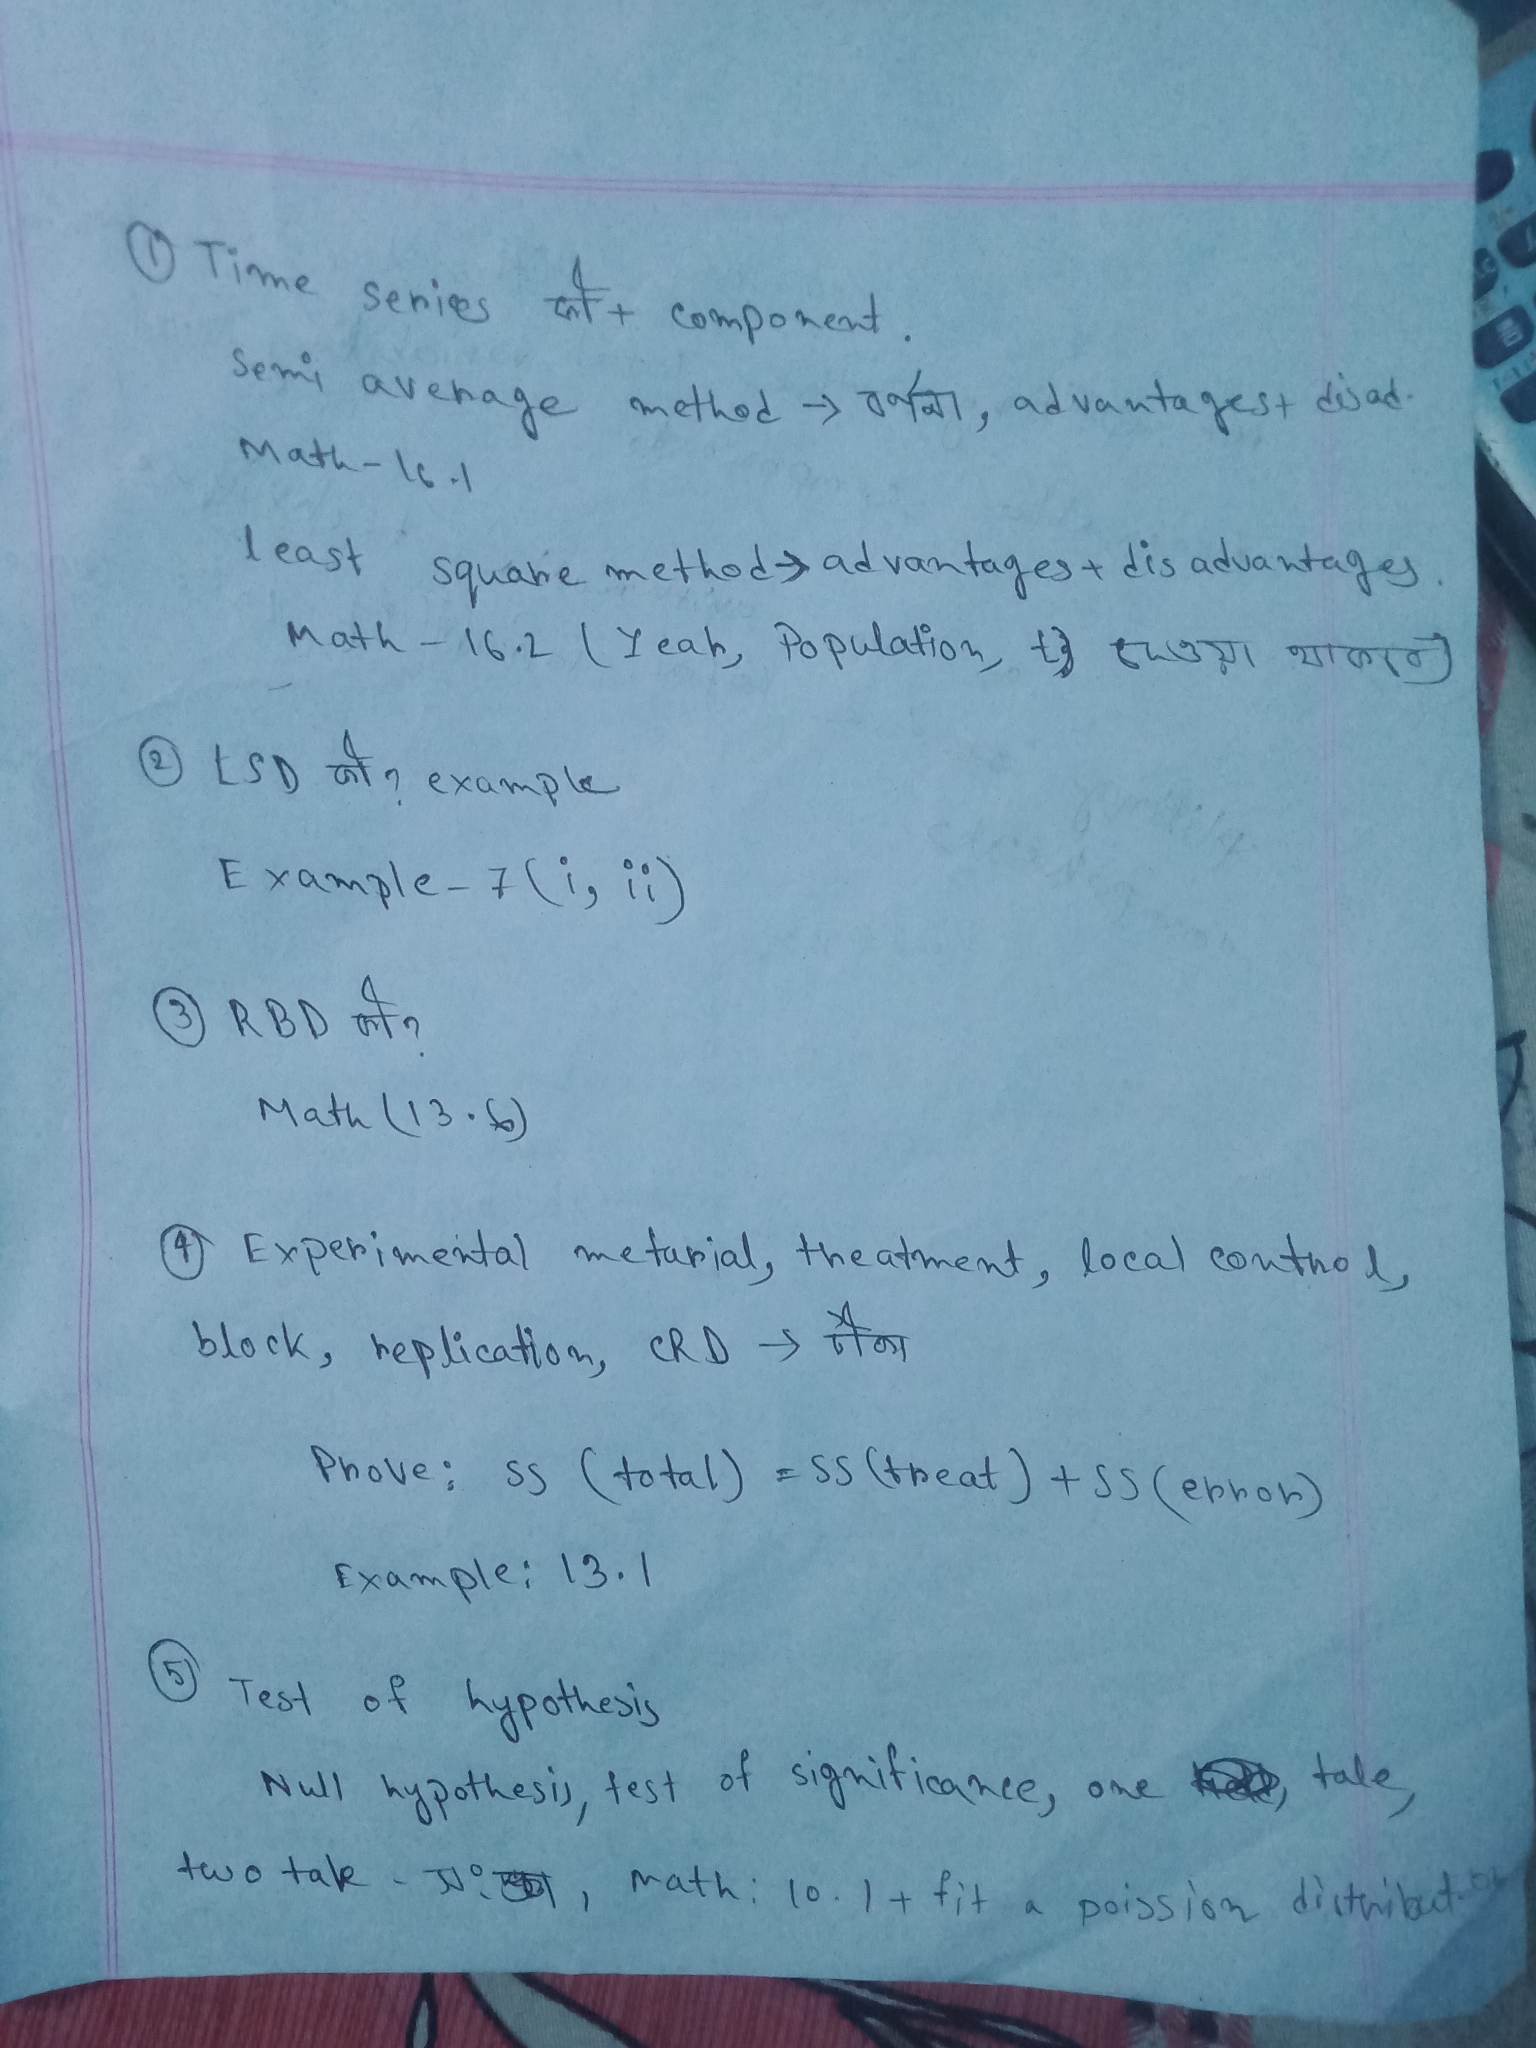 ① Time series কী + component.
Semi average method → বর্ণনা, advantages + disad.
Math - 16.1
least square method → advantages + disadvantages.
Math - 16.2 (Year, Population, t দেওয়া থাকবে)
② LSD কী? example
Example - 7 (i, ii)
③ RBD কী?
Math (13.6)
④ Experimental metarial, treatment, local control,
block, replication, CRD →
Prove: SS (total) = SS (treat) + SS (error)
Example: 13.1
⑤ Test of hypothesis
Null hypothesis, test of significance, one tale,
two tale - math: 10.1 + fit a poission distribution